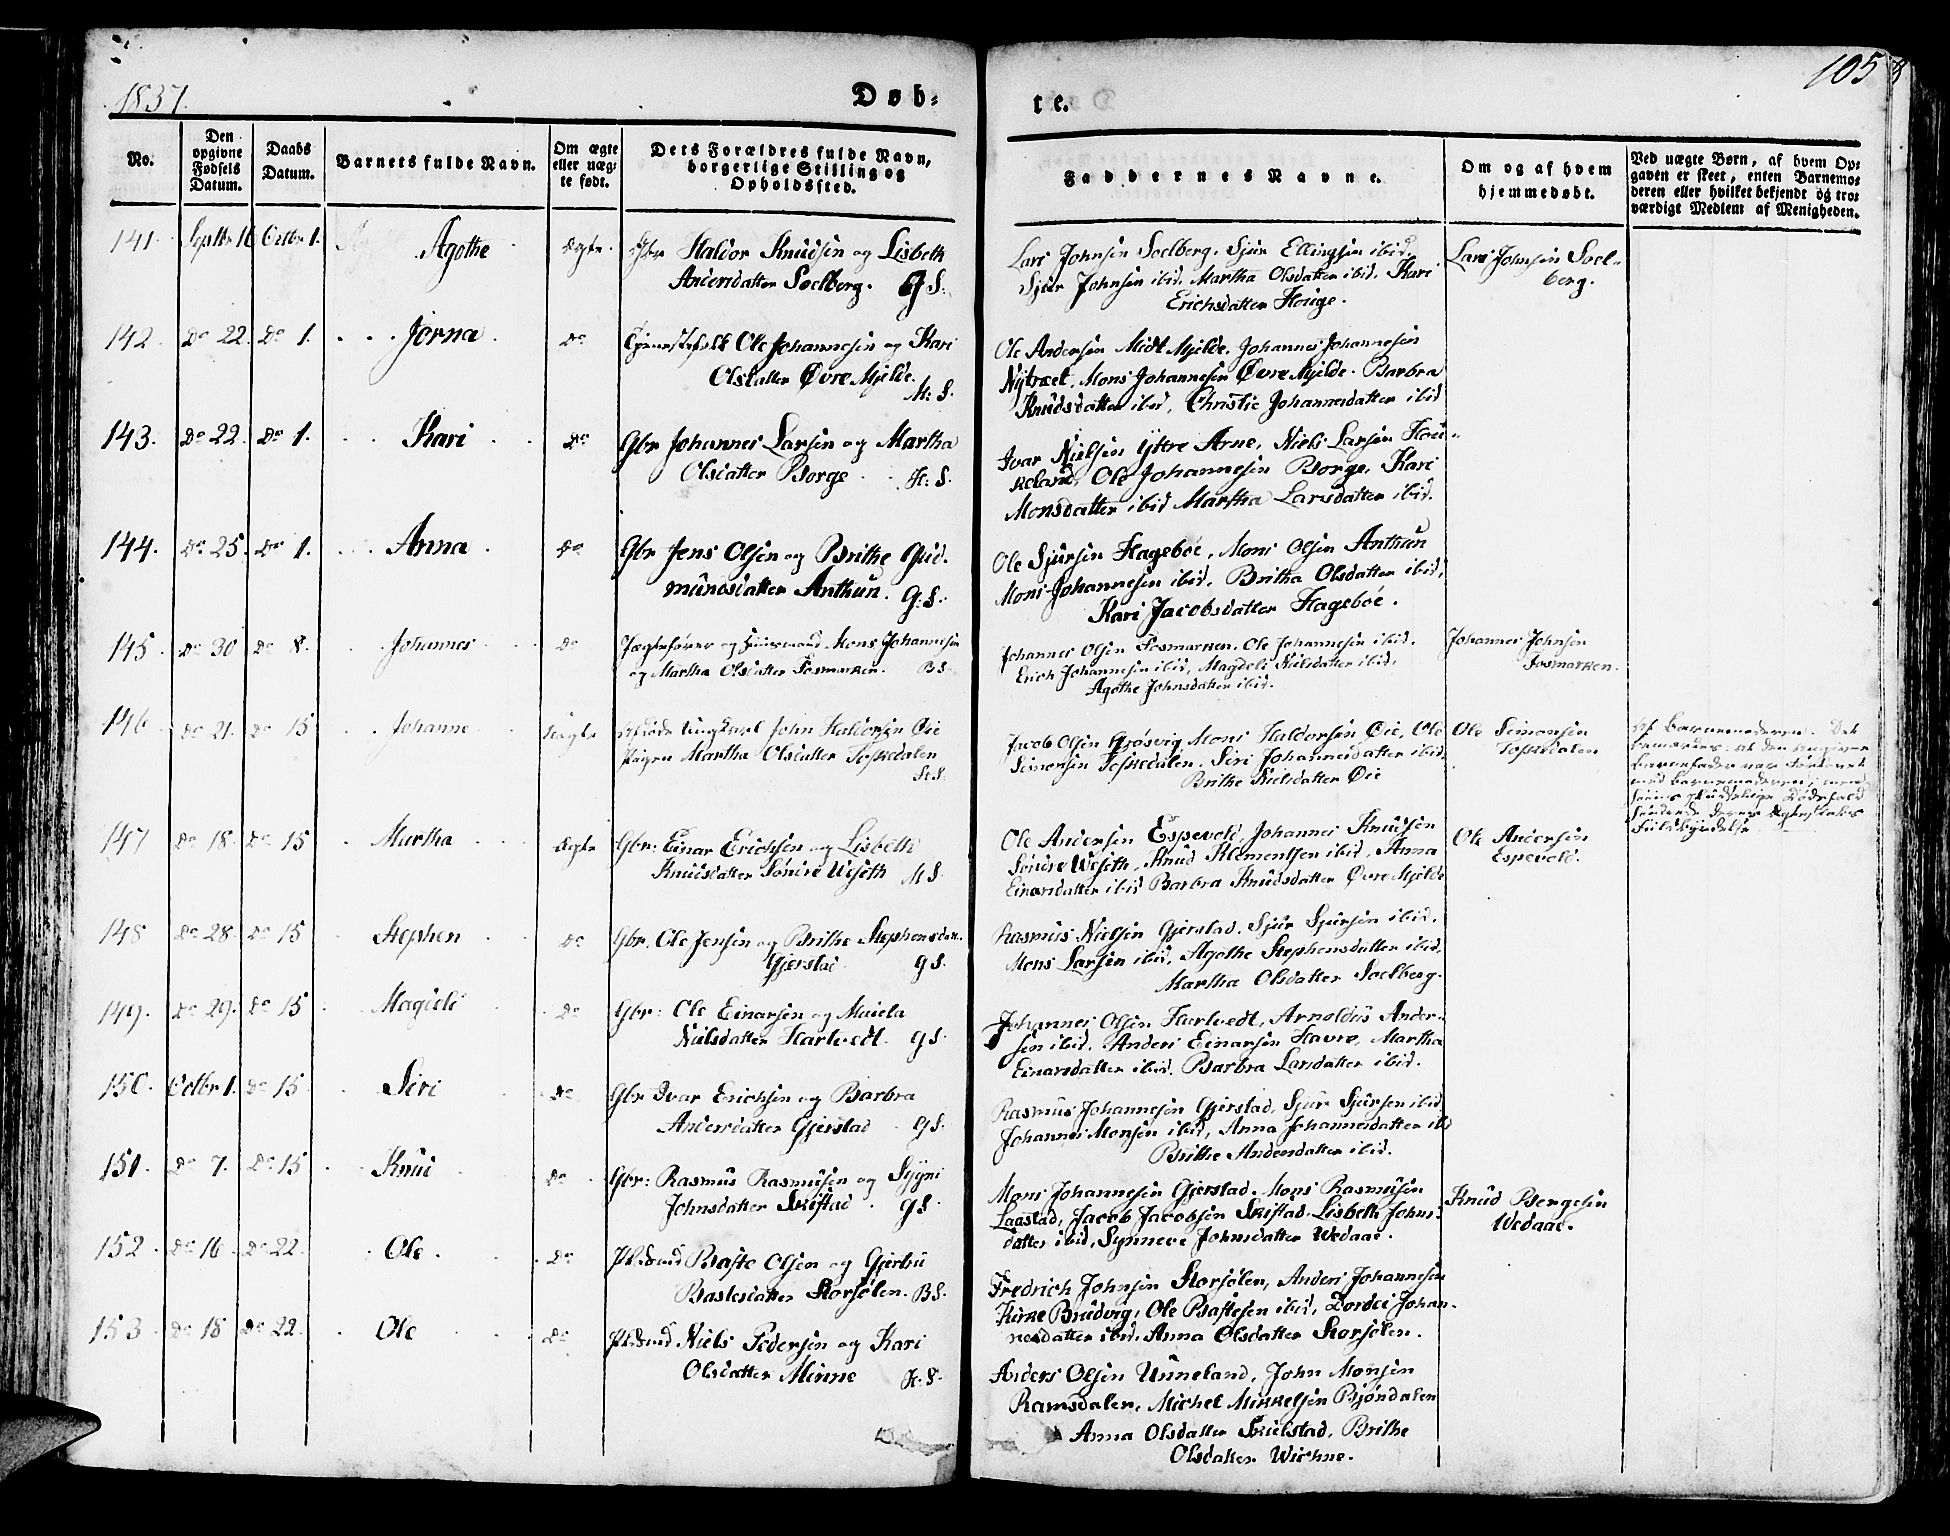 1837.
Døb=
te.
105
No.
Den opgivne Fødsels Datum.
Daabs Datum.
Barnets fulde Navn.
Om ægte eller uæg= te født.
Dets Forældres fulde Navn, borgerlige Stilling og Opholdssted.
Faddernes Navne.
Om og af hvem hjemmedøbt.
Ved uægte Børn, af hvem Op= gaven er skeet, enten Barnemo= deren eller hvilket bekjendt og tro= værdigt Medlem af Menigheden.
141. Septbr 16 Octbr 1. Agothe Ægte. Gbr Haldor Knudsen og Lisbeth
Andersdatter Soelberg. G S.
Lars Johnsen Soelberg. Sjur Ellingsen ibid.
Sjur Johnsen ibid. Martha Olsdatter ibid. Kari
Erichsdatter Houge.
Lars Johnsen Soel=
berg.
142. Do 22. Do 1. Jorna Do Tjenestefolk Ole Johannesen og Kari
Olsdatter Øvre Mjelde. M: S.
Ole Andersen Midt Mjelde. Johannes Johannesen
Nytræet, Mons Johannesen Øvre Mjelde. Barbra
Knudsdatter ibid, Christie Johannesdatter ibid
143. Do 22. Do 1. Kari Do Gbr Johannes Larsen og Martha
Olsdatter Borge. H: S.
Ivar Nielsen Yttre Arne, Niels Larsen Hou=
keland, Ole Johannesen Borge, Kari
Monsdatter ibid Martha Larsdatter ibid.
144. Do 25. Do 1. Anna Do Gbr Jens Olsen og Brithe Gud.
mundsdatter Anthun. G: S.
Ole Sjursen Hagebøe, Mons Olsen Anthun
Mons Johannesen ibid, Britha Olsdatter ibid,
Kari Jacobsdatter Hagebøe.
145 Do 30 Do 8. Johannes Do Jægtefører og Huusmand Mons Johannesen
og Martha Olsdatter Fosmarken. B S.
Johannes Olsen Fosmarken, Ole Johannesen ibid.
Erich Johannesen ibid, Magdeli Nielsdatter ibid,
Agothe Johnsdatter ibid.
Johannes Johnsen
Fosmarken.
146 Do 21. Do 15 Johanne Uægte Afdøde Ungkarl John Haldorsen Øie
Pigen Martha Olsdatter Toskedalen
H: S.
Jacob Olsen Grøsvig, Mons Haldorsen Øie, Ole
Simonsen Toskedalen, Siri Johannesdatter ibid,
Brithe Nielsdatter Øie
Ole Simonsen
Toskedalen
Af Barnemoderen. Det
bemærkes at den angivne
Barnefader var forlovet
med Barnemoderen; men
hans pludselige Dødsfald
hindrede deres Ægteskabs
Fuldbyrdelse.
147 Do 18. Do 15 Martha Ægte Gbr: Einar Erichsen og Lisbeth
Knudsdatter Søndre Wiseth M S.
Ole Andersen Espevold, Johannes Knudsen
Søndre Wiseth, Knud Klementsen ibid, Anna
Einarsdatter ibid Barbra Knudsdatter Øvre Mjelde
Ole Andersen
Espevold.
148 Do 28. Do 15 Stephen Do Gbr. Ole Jensen og Brithe Stephensdatt.
Gjerstad. G S.
Rasmus Nielsen Gjerstad, Sjur Sjursen ibid.
Mons Larsen ibid, Agothe Stephensdatter ibid,
Martha Olsdatter Soelberg.
149. Do 29. Do 15 Magdeli Do Gbr: Ole Einarsen og Maiela
Nielsdatter Hartvedt. G S.
Johannes Olsen Hartvedt, Arnoldus Ander=
sen ibid. Anders Einarsen Havre, Martha
Einarsdatter ibid. Barbra Larsdatter ibid.
150. Octbr 1. Do 15 Siri Do Gbr Ivar Erichsen og Barbra
Andersdatter Gjerstad G S.
Rasmus Johannesen Gjerstad, Sjur Sjursen ibid
Johannes Monsen ibid, Anna Johannesdatter ibd
Brithe Andersdatter ibid.
151. Do 7. Do 15 Knud Do Gbr: Rasmus Rasmusen og Sygni
Johnsdatter Skistad. G S.
Mons Johannesen Gjerstad. Mons Rasmusen
Laastad, Jacob Jacobsen Skistad. Lisbeth Johns=
datter ibid, Synneve Johnsdatter Wedaae.
Knud Bergesen
Wedaae.
152 Do 16 Do 22. Ole. Do Pldsmd Baste Olsen og Gjertru
Bastesdatter Storsølen. B S.
Fredrich Johnsen Storsølen, Anders Johannesen
Kirke Brudvig, Ole Bastesen ibid, Dordei Johan=
nesdatter ibid. Anna Olsdatter Storsølen.
153 Do 18 Do 22. Ole Do Pldsmd Niels Pedersen og Kari
Olsdatter Minne H: S.
Anders Olsen Unneland, John Monsen
Ramsdalen, Michel Mikkelsen Bjøndalen
Anna Olsdatter Skielstad, Brithe
Olsdatter Wichne.